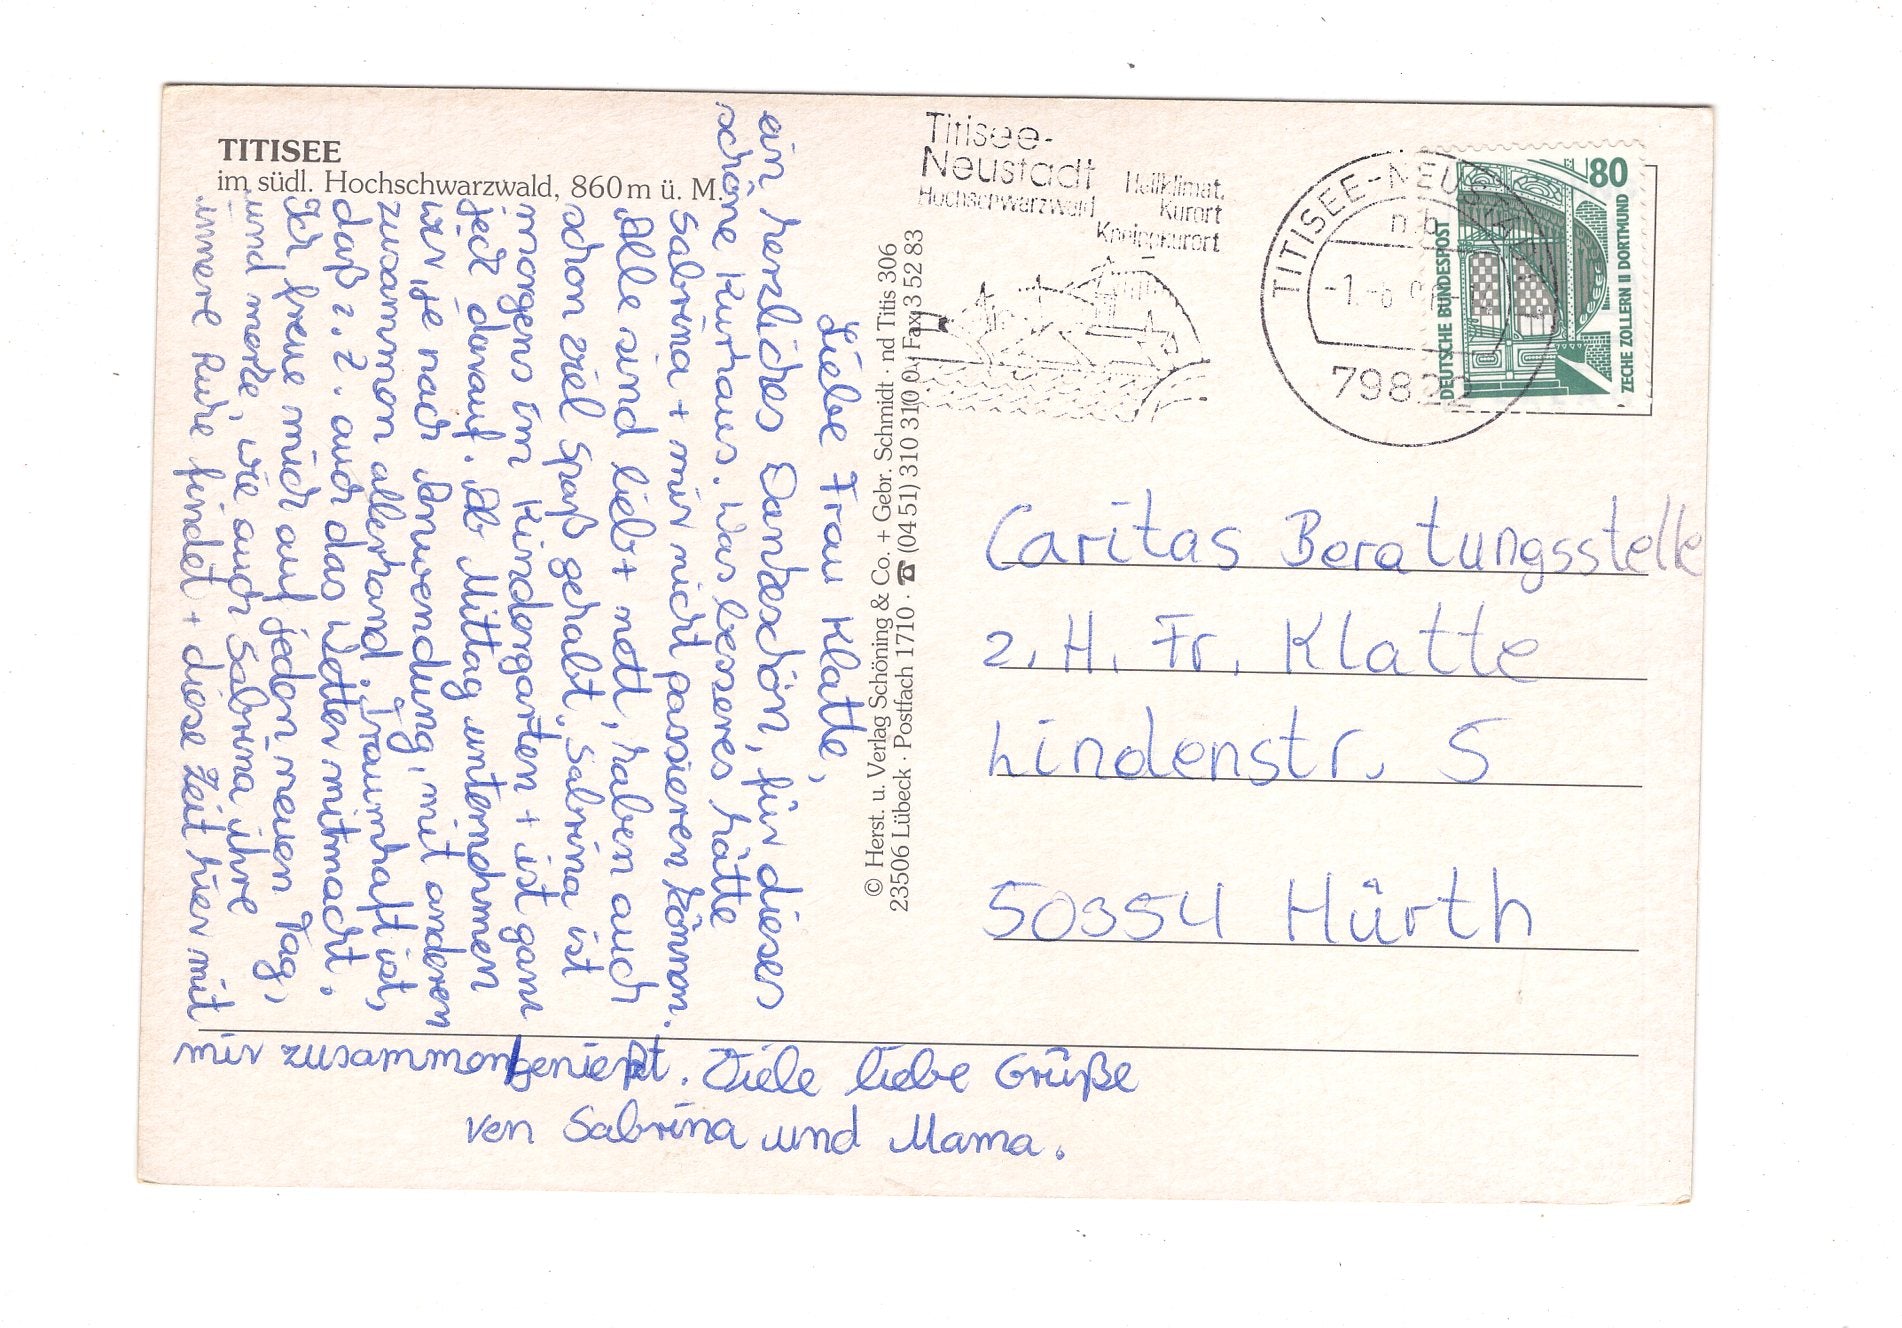 TITISEE
im südl. Hochschwarzwald, 860 m ü. M.
Liebe Frau Klatte,
ein herzliches Dankeschön, für dieses
schöne Kurhaus. Was besseres hätte
Sabrina + mir nicht passieren können.
Alle sind lieb + nett, haben auch
schon viel Spaß gehabt. Sabrina ist
morgens im Kindergarten + ist ganz
jeck darauf. Ab Mittag unternehmen
wir, je nach Anwendung, mit anderen
zusammen allerhand. Traumhaft ist,
daß z. Z. auch das Wetter mitmacht.
Ich freue mich auf jeden neuen Tag,
und merke, wie auch Sabrina ihre
innere Ruhe findet + diese Zeit hier mit
mir zusammen genießt. Viele liebe Grüße
von Sabrina und Mama.
© Herst. u. Verlag Schöning & Co. + Gebr. Schmidt · nd Titis 306
23506 Lübeck · Postfach 1710 · ☎ (0451) 310 310 · Fax 3 52 83
Titisee-
Neustadt
Hochschwarzwald
Heilklimat.
Kurort
Kneippkurort
TITISEE-NEUSTADT
79822
80
DEUTSCHE BUNDESPOST
ZECHE ZOLLERN II DORTMUND
Caritas Beratungsstelle
z. H. Fr. Klatte
Lindenstr. 5
50354 Hürth